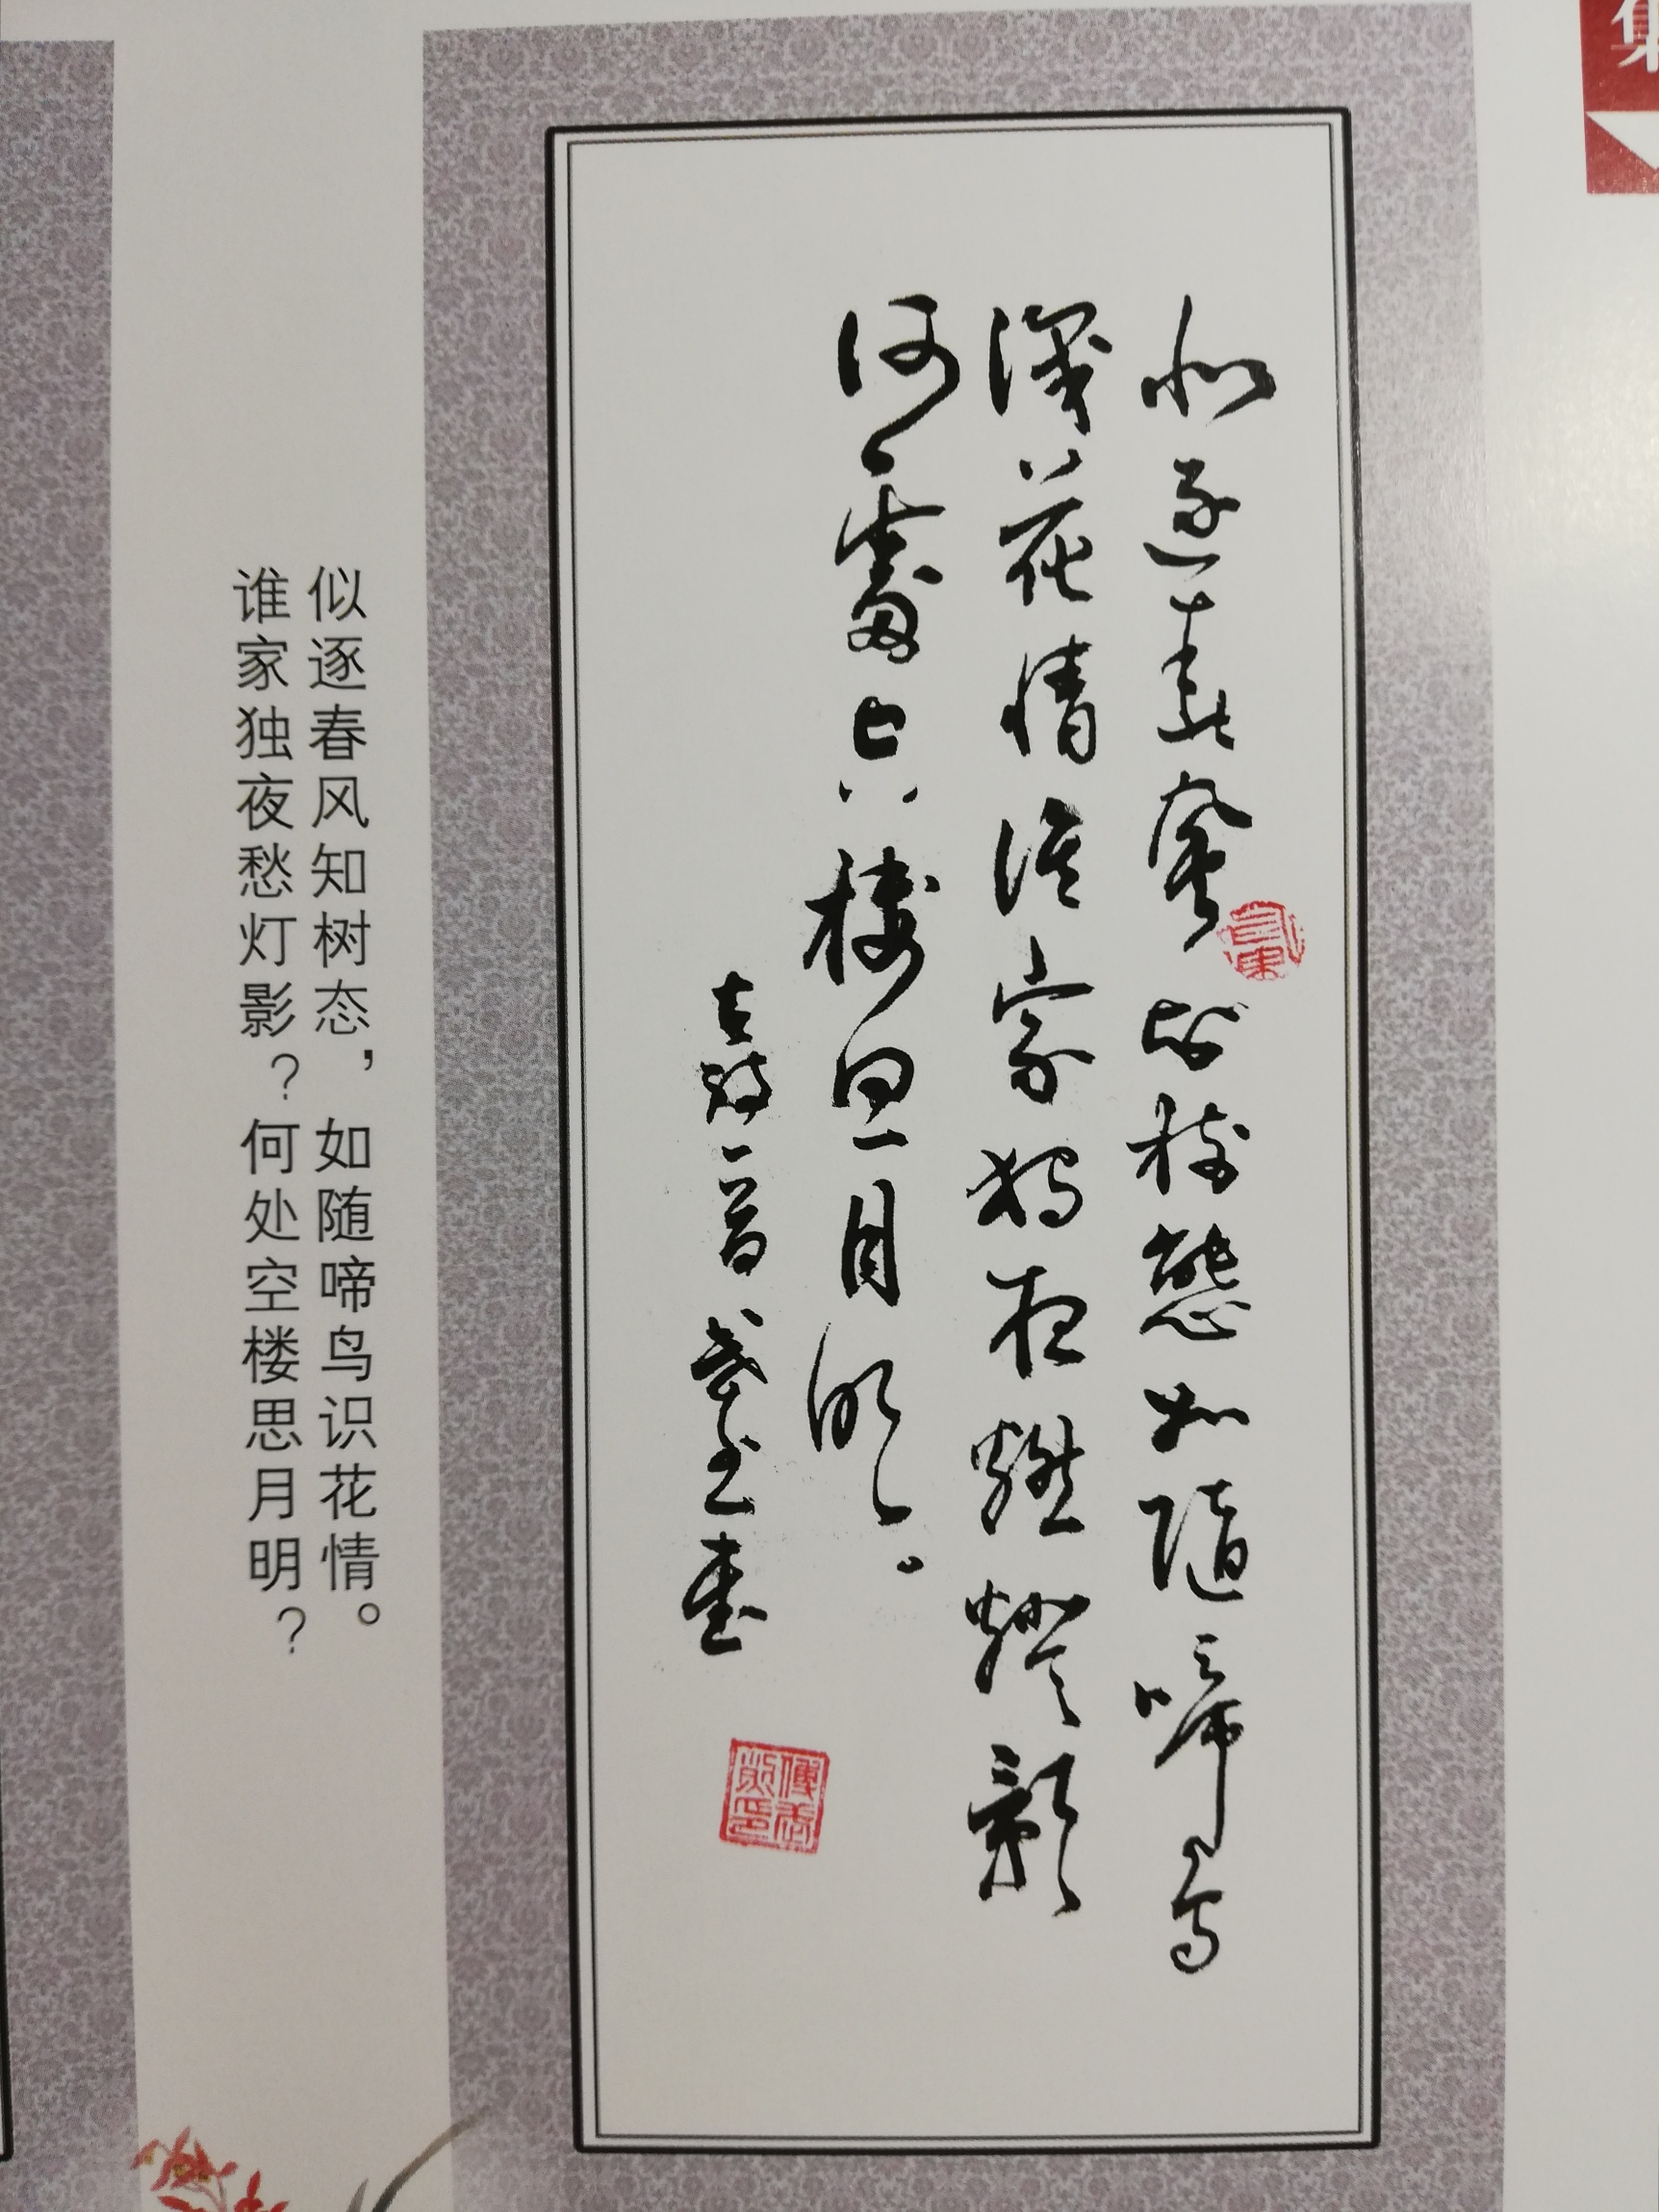 似逐春风知树态如随啼鸟
识花情谁家独夜愁灯影
何处空楼思月明。
似逐春风知树态，如随啼鸟识花情。
谁家独夜愁灯影？何处空楼思月明？